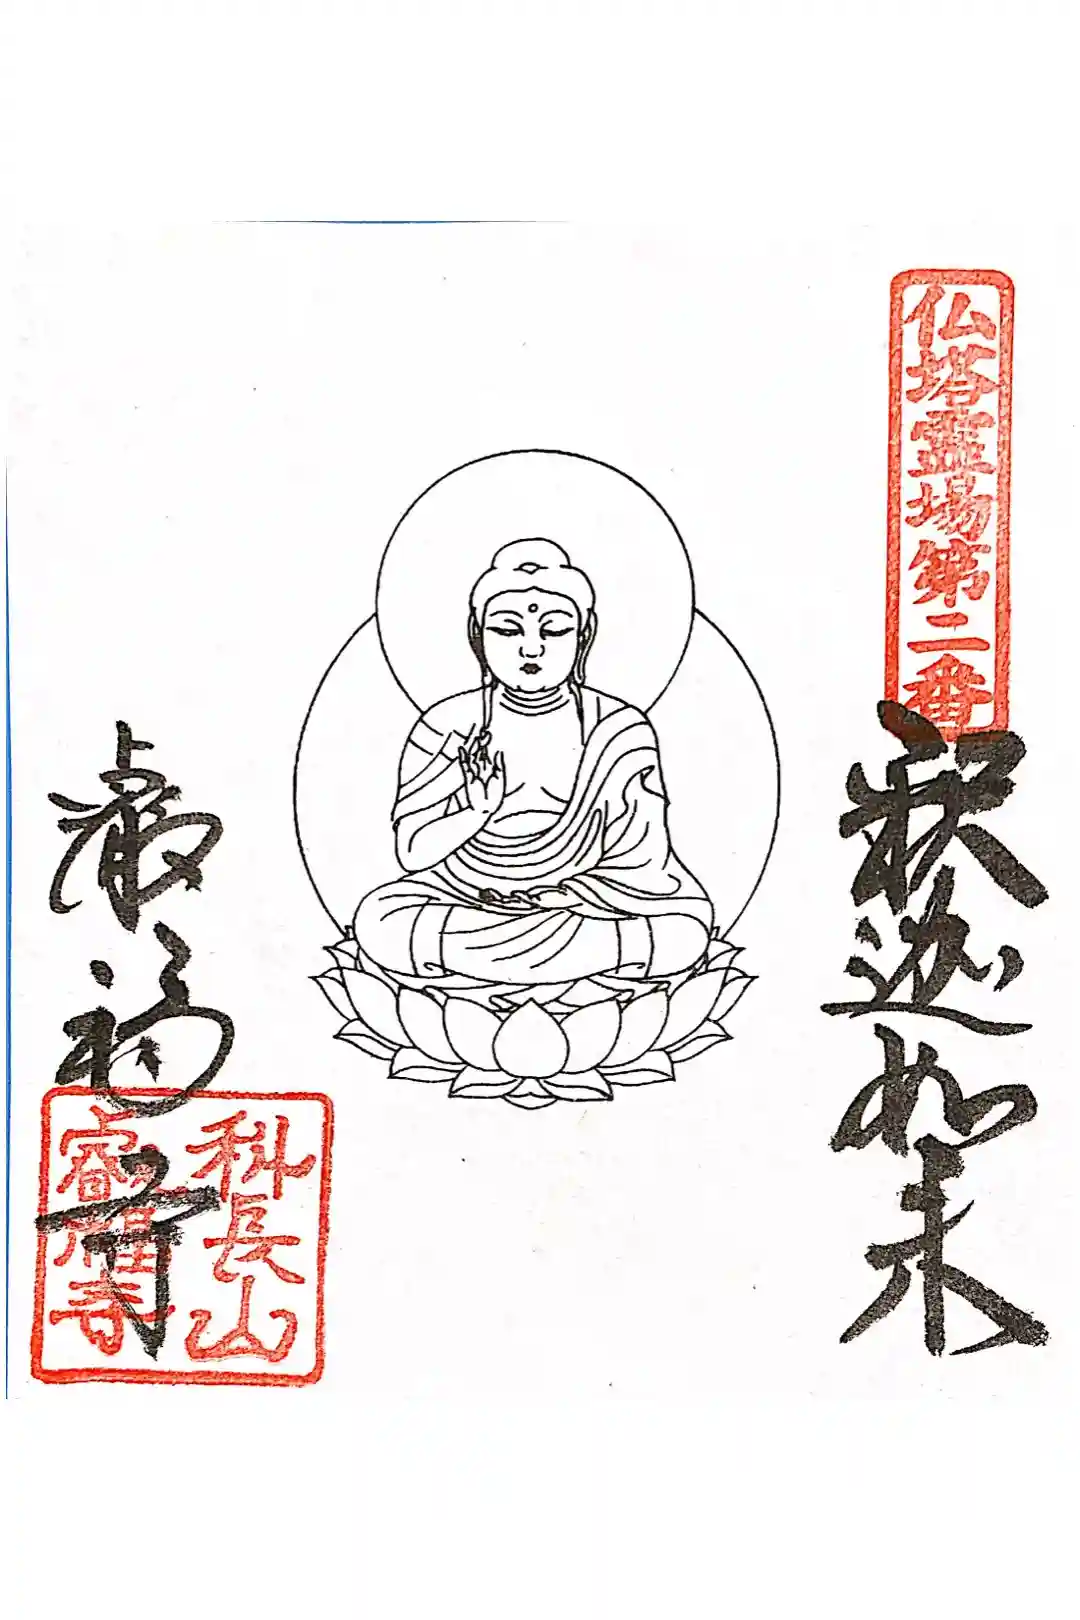 仏塔霊場第二番
釈迦如来
科長山
叡福寺
叡福寺